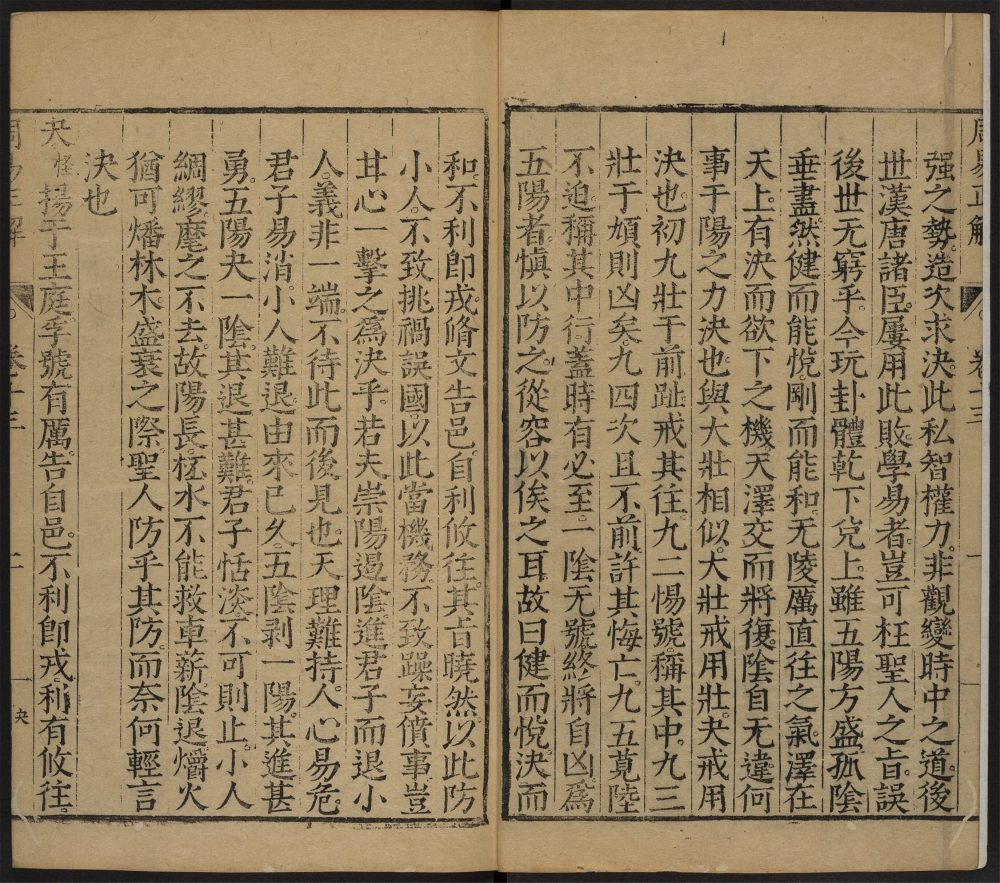 周易正解 卷十三 一
强之勢。造次求決。此私智權力。非觀變時中之道。後
世漢唐諸臣。屢用此敗。學易者。豈可枉聖人之旨。誤
後世无窮乎。今玩卦體乾下兌上。雖五陽方盛。孤陰
垂盡。然健而能悅。剛而能和。无陵厲直往之氣。澤在
天上。有決而欲下之機。天澤交而將復。陰自无違。何
事于陽之力決也。與大壯相似。大壯戒用壯。夬戒用
決也。初九壯于前趾。戒其往。九二惕號。稱其中。九三
壯于頄則凶矣。九四次且不前。許其悔亡。九五莧陸
不迫。稱其中行。蓋時有必至。一陰无號。終將自凶。爲
五陽者。愼以防之。從容以俟之耳。故曰健而悅。決而
和。不利卽戎。脩文告邑。自利攸往。其旨曉然。以此防
小人。不致挑禍誤國。以此當機務。不致躁妄僨事。豈
甘心一擊之爲決乎。若夫崇陽遏陰。進君子而退小
人。義非一端。不待此而後見也。天理難持。人心易危。
君子易消。小人難退。由來已久。五陰剥一陽。其進甚
勇。五陽夬一陰。其退甚難。君子恬淡。不可則止。小人
綢繆。麾之不去。故陽長。柸水不能救車薪。陰退。爝火
猶可燔林木。盛衰之際。聖人防乎其防。而奈何輕言
決也
夬怪揚于王庭。孚號有厲。告自邑。不利卽戎。利有攸往。
周易正解 卷十三 二 夬